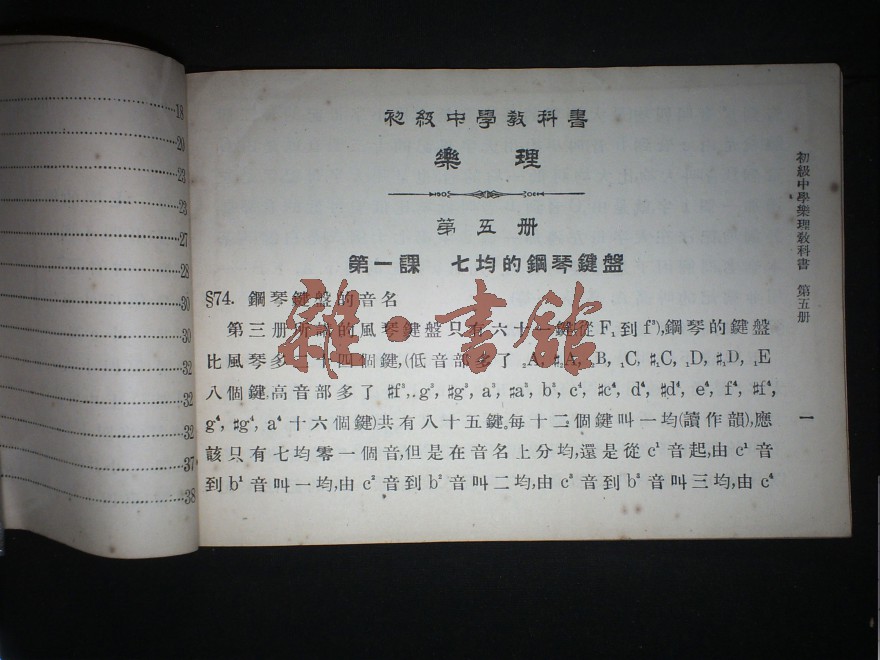 18
20
22
23
27
28
30
30
32
32
32
37
38
初級中學教科書
樂理
第五册
第一課 七均的鋼琴鍵盤
§74. 鋼琴鍵盤的音名
第三册所講的風琴鍵盤只有六十一鍵(從F₁到f³),鋼琴的鍵盤
比風琴多二十四個鍵,(低音部多了 ₁A, ♯₁A, ₁B, ₁C, ♯₁C, ₁D, ♯₁D, ₁E
八個鍵,高音部多了 ♯f³, g³, ♯g³, a³, ♯a³, b³, c⁴, ♯c⁴, d⁴, ♯d⁴, e⁴, f⁴, ♯f⁴,
g⁴, ♯g⁴, a⁴ 十六個鍵)共有八十五鍵,每十二個鍵叫一均(讀作韻),應
該只有七均零一個音,但是在音名上分均,還是從 c¹ 音起,由 c¹ 音
到 b¹ 音叫一均,由 c² 音到 b² 音叫二均,由 c³ 音到 b³ 音叫三均,由 c⁴
初級中學樂理教科書 第五册
一
雜·書館